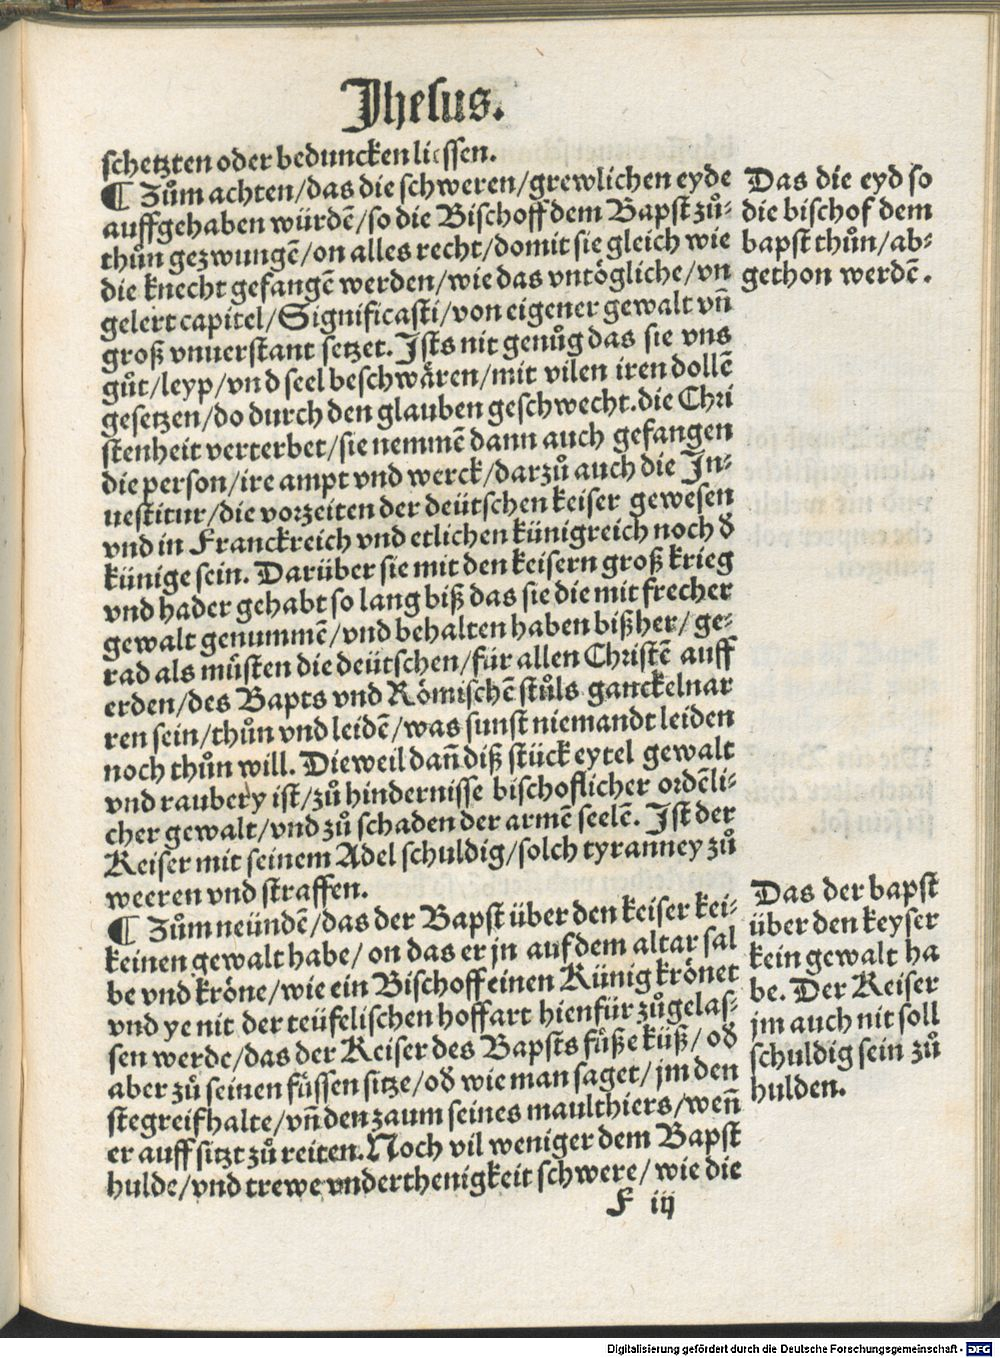 Jhesus.
schetzten oder beduncken liessen.
¶ Zům achten/das die schweren/grewlichen eyde
auffgehaben würdē/so die Bischoff dem Bapst zů-
thůn gezwungē/on alles recht/domit sie gleich wie
die knecht gefangē werden/wie das vntögliche/vn
gelert capitel/Significasti/von eigener gewalt vn̄
groß vnuerstant setzet. Jsts nit genůg das sie vns
gůt/leyp/vnd seel beschwären/mit vilen iren dollē
gesetzen/do durch den glauben geschwecht.die Chri
stenheit verterbet/sie nemmē dann auch gefangen
die person/ire ampt vnd werck/darzů auch die Jn-
uestitur/die vorzeiten der deütschen keiser gewesen
vnd in Franckreich vnd etlichen künigreich noch d̕
künige sein. Darüber sie mit den keisern groß krieg
vnd hader gehabt so lang biß das sie die mit frecher
gewalt genummē/vnd behalten haben bißher/ge-
rad als můsten die deütschen/für allen Christē auff
erden/des Bapts vnd Römischē stůls ganckelnar
ren sein/thůn vnd leidē/was sunst niemandt leiden
noch thůn will. Dieweil dan̄ diß stück eytel gewalt
vnd raubery ist/zů hindernisse bischoflicher ordēli-
cher gewalt/vnd zů schaden der armē seelē. Jst der
Keiser mit seinem Adel schuldig/solch tyranney zů
weeren vnd straffen.
¶ Zům neündē/das der Bapst über den keiser kei-
keinen gewalt habe/ on das er jn auf dem altar sal
be vnd kröne/wie ein Bischoff einen Künig krönet
vnd ye nit der teüfelischen hoffart hienfür zůgelas-
sen werde/das der Keiser des Bapsts füße küß/ od̕
aber zů seinen füssen sitze/od̕ wie man saget/jm den
stegreif halte/vn̄ den zaum seines maulthiers/wen̄
er auff sitzt zů reiten. Noch vil weniger dem Bapst
hulde/vnd trewe vnderthenigkeit schwere/wie die
F iij
Das die eyd so
die bischof dem
bapst thůn/ab-
gethon werdē.
Das der bapst
über den keyser
kein gewalt ha
be. Der Keiser
jm auch nit soll
schuldig sein zů
hulden.
Digitalisierung gefördert durch die Deutsche Forschungsgemeinschaft - DFG